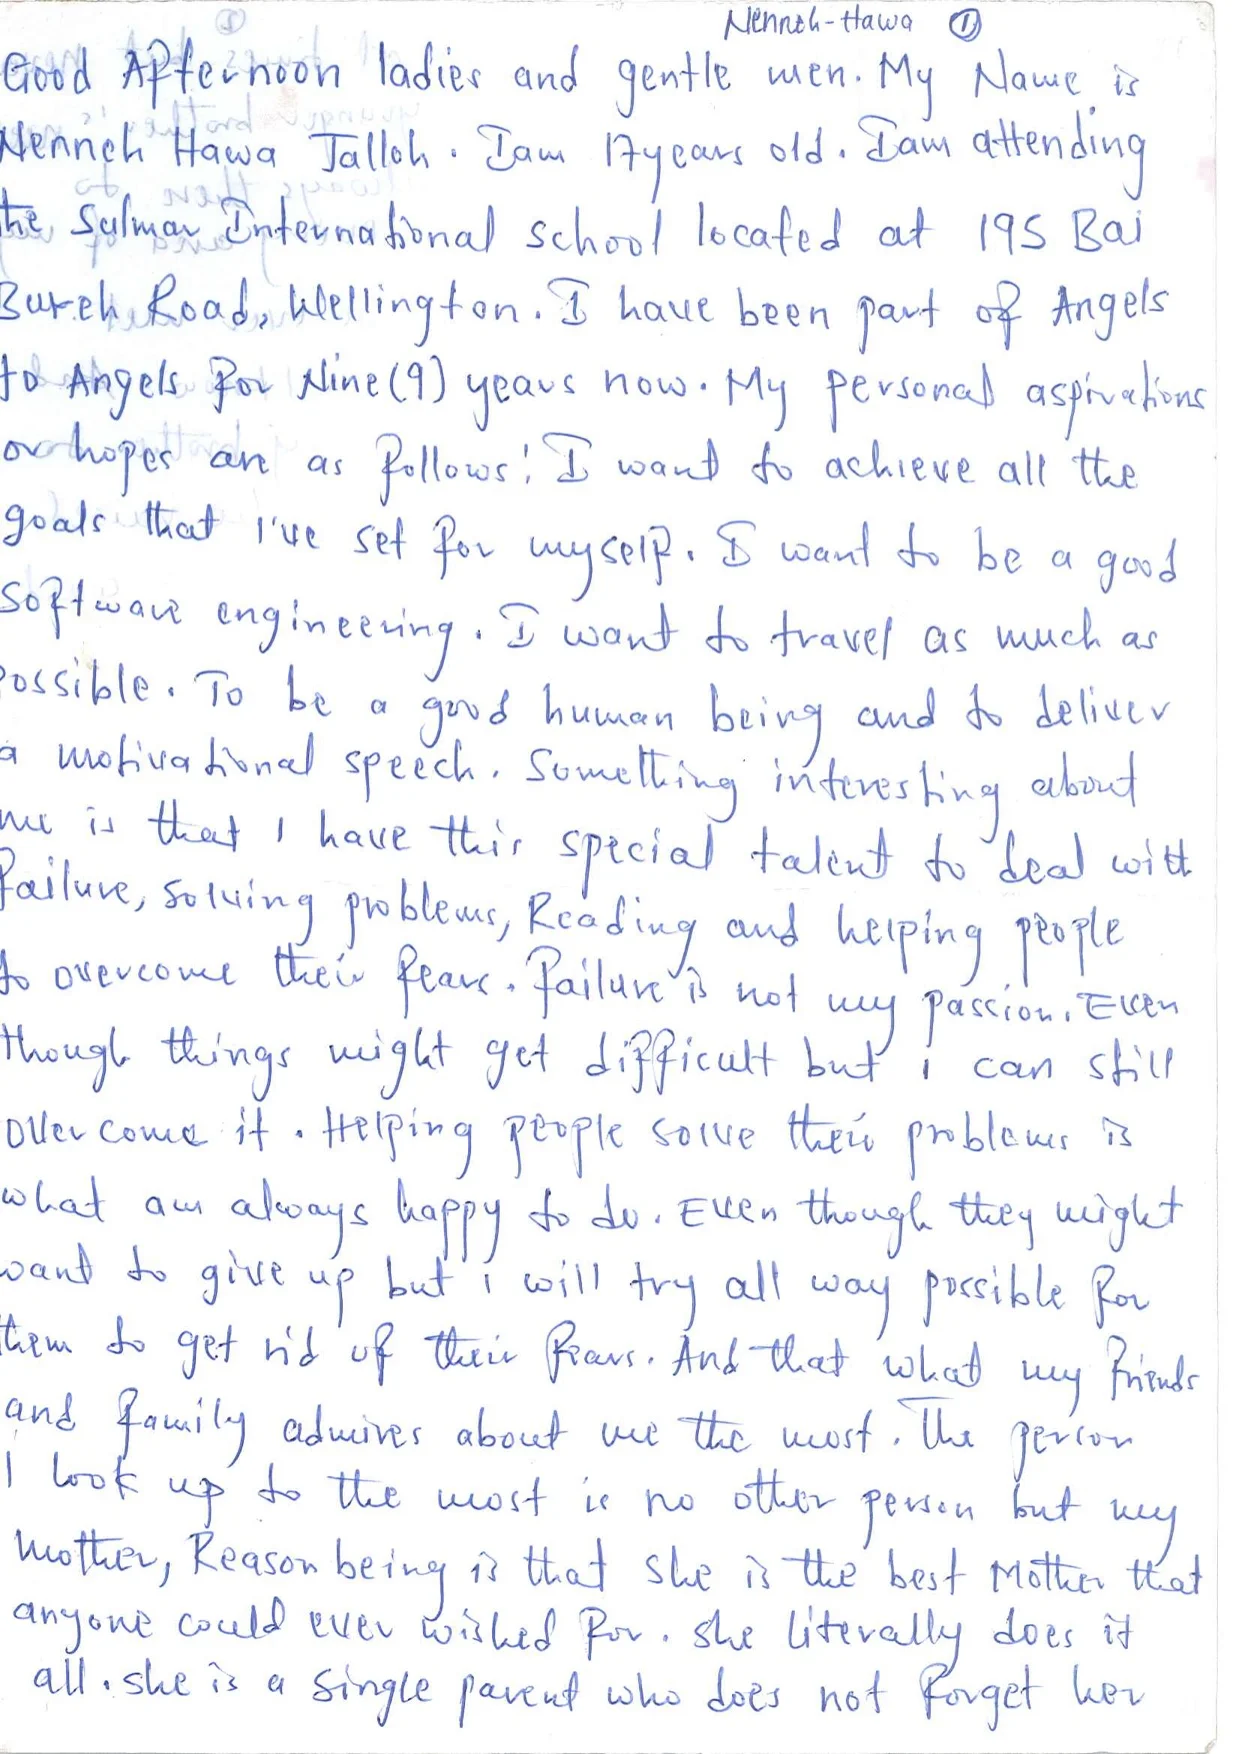 Nenneh-Hawa 1
Good Afternoon ladies and gentle men. My Name is
Nenneh Hawa Jalloh. I am 17years old. I am attending
the Sulmar International school located at 195 Bai
Bureh Road, Wellington. I have been part of Angels
to Angels for Nine(9) years now. My personal aspirations
or hopes are as follows: I want to achieve all the
goals that I've set for myself. I want to be a good
software engineering. I want to travel as much as
possible. To be a good human being and to deliver
a motivational speech. Something interesting about
me is that I have this special talent to deal with
failure, solving problems, Reading and helping people
to overcome their fears. failure is not my passion. Even
though things might get difficult but i can still
overcome it. Helping people solve their problems is
what am always happy to do. Even though they might
want to give up but i will try all way possible for
them to get rid of their fears. And that what my friends
and family admires about me the most. The person
I look up to the most is no other person but my
mother, Reason being is that she is the best Mother that
anyone could ever wished for. she literally does it
all. she is a single parent who does not forget her